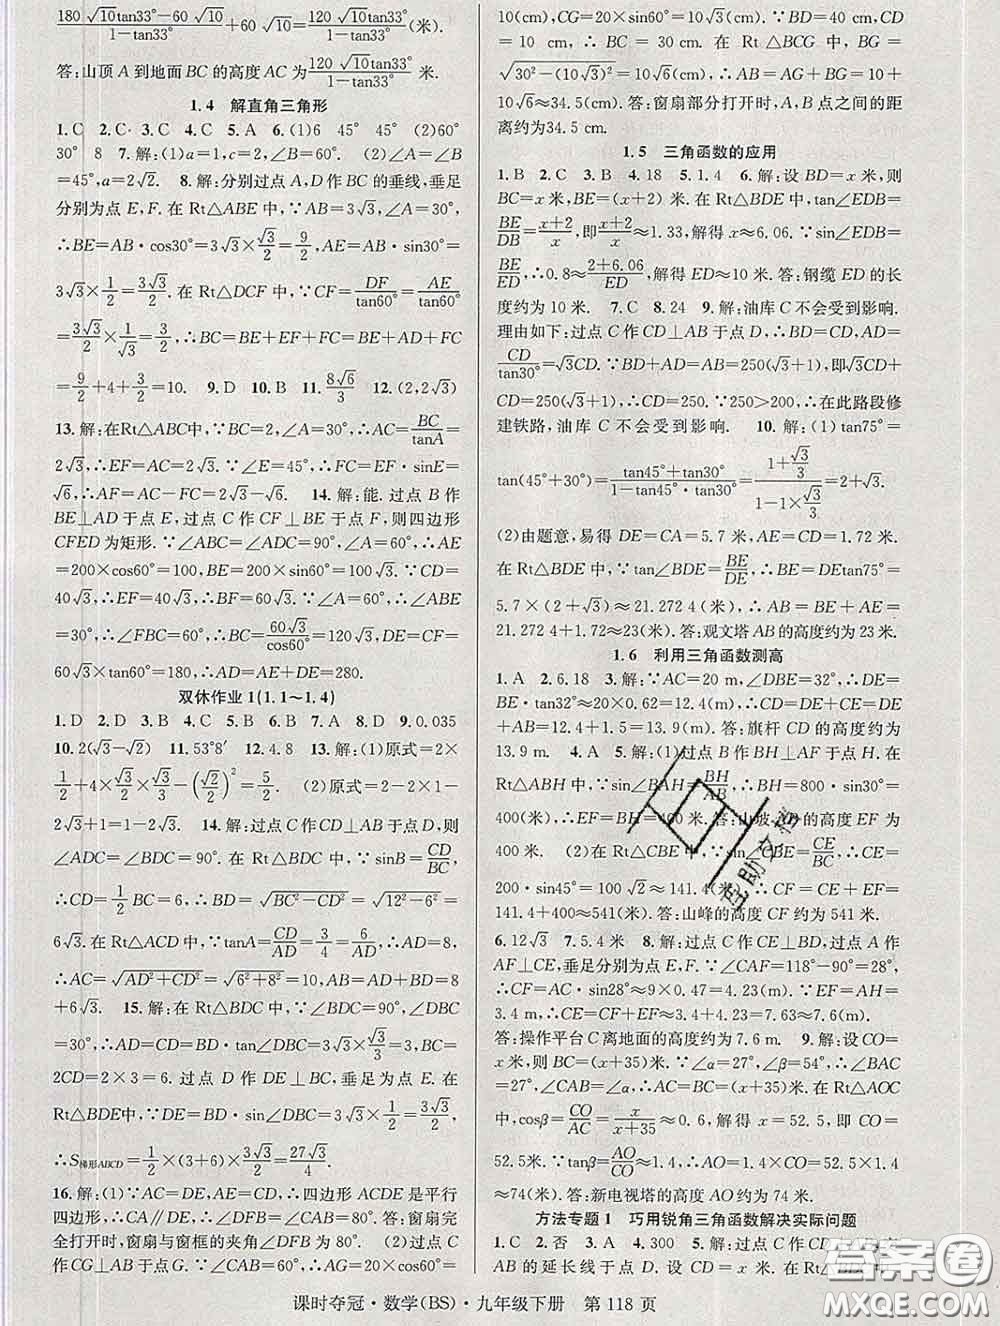 180√10tan33°−60√10/1−tan33°+60√10=120√10tan33°/1−tan33°(米).
答:山顶A到地面BC的高度AC为120√10tan33°/1−tan33°米.
1.4 解直角三角形
1.C 2.C 3.C 4.C 5.A 6.(1)6 45° 45° (2)60°
30° 8 7.解:(1)a=1,c=2,∠B=60°. (2)∠A=∠B
=45°,a=2√2. 8.解:分别过点A,D作BC的垂线,垂足
分别为点E,F.在Rt△ABE中,∵AB=3√3,∠A=30°,
∴BE=AB·cos30°=3√3×√3/2=9/2,AE=AB·sin30°=
3√3×1/2=3√3/2.在Rt△DCF中,∵CF=DF/tan60°=AE/tan60°
=3√3/2×1/√3=3/2,∴BC=BE+EF+FC=BE+AD+FC
=9/2+4+3/2=10. 9.D 10.B 11.8√6/3 12.(2,2√3)
13.解:在Rt△ABC中,∵BC=2,∠A=30°,∴AC=BC/tanA=
2√3,∴EF=AC=2√3.∵∠E=45°,∴FC=EF·sinE=
√6,∴AF=AC−FC=2√3−√6. 14.解:能.过点B作
BE⊥AD于点E,过点C作CF⊥BE于点F,则四边形
CFED为矩形.∵∠ABC=∠ADC=90°,∠A=60°,∴AE=
200×cos60°=100,BE=200×sin60°=100√3.∵CD=
40√3,∴EF=40√3,∴BF=60√3.∵∠A=60°,∴∠ABE
=30°,∴∠FBC=60°,∴BC=60√3/cos60°=120√3,DE=CF=
60√3×tan60°=180,∴AD=AE+DE=280.
双休作业1(1.1~1.4)
1.D 2.B 3.C 4.C 5.B 6.B 7.D 8.D 9.0.035
10.2(√3−√2) 11.53°8′ 12.4.8 13.解:(1)原式=2×
1/2+4×√3/2×√3/2−(√2/2)²=5/2. (2)原式=2−2×1−
2√3+1=1−2√3. 14.解:过点C作CD⊥AB于点D,则
∠ADC=∠BDC=90°.在Rt△BDC中,∵sinB=CD/BC,
∴CD=1/2BC=6,∴BD=√BC²−CD²=√12²−6²=
6√3.在Rt△ACD中,∵tanA=CD/AD=3/4=6/AD,∴AD=8,
∴AC=√AD²+CD²=√6²+8²=10,AB=AD+BD=8
+6√3. 15.解:在Rt△BDC中,∵∠BDC=90°,∠DBC
=45°,∴∠DCB=∠DBC=45°,∴BD=CD=3√3,∴BC=
2CD=2×3=6.过点D作DE⊥BC,垂足为点E.在
Rt△BDE中,∵DE=BD·sin∠DBC=3√3×1/2=3√3/2,
∴S梯形ABCD=1/2×(3+6)×3√3/2=27√3/4.
16.解:(1)∵AC=DE,AE=CD,∴四边形ACDE是平行
四边形,∴CA∥DE,∴∠DFB=∠CAB=80°.答:窗扇
完全打开时,窗扇与窗框的夹角∠DFB为80°. (2)过点C
作CG⊥AB于点G.∵∠CAB=60°,∴AG=20×cos60°=
10(cm),CG=20×sin60°=10√3(cm).∵BD=40 cm,CD
=10 cm,∴BC=30 cm.在Rt△BCG中,BG=
√30²−(10√3)²=10√6(cm),∴AB=AG+BG=10+
10√6≈34.5(cm).答:窗扇部分打开时,A,B之间的距
离约为34.5 cm.
1.5 三角函数的应用
1.B 2.C 3.B 4.18 5.1.4 6.解:设BD=x米,则
BC=x米,BE=(x+2)米.在Rt△BDE中,tan∠EDB=
BE/DB=x+2/x,即x+2/x≈1.33,解得x≈6.06.∵sin∠EDB=
BE/ED,∴0.8≈2+6.06/ED,解得ED≈10米.答:钢缆ED的长
度约为10米. 7.C 8.24 9.解:油库C不会受到影响.
理由如下:过点C作CD⊥AB于点D,∴BD=CD,AD=
CD/tan30°=√3CD.∵BD+AD=AB=250(√3+1),即√3CD+
CD=250(√3+1),∴CD=250.∵250>200,∴在此路段修
建铁路,油库C不会受到影响. 10.解:(1)tan75°=
tan(45°+30°)=tan45°+tan30°/1−tan45°·tan30°=1+√3/3/1−1×√3/3=2+√3.
(2)由题意,易得DE=CA=5.7米,AE=CD=1.72米.
在Rt△BDE中,∵tan∠BDE=BE/DE,∴BE=DEtan75°=
5.7×(2+√3)≈21.272 4(米),∴AB=BE+AE=
21.272 4+1.72≈23(米).答:观文塔AB的高度约为23米.
1.6 利用三角函数测高
1.A 2.6.18 3.解:∵AC=20 m,∠DBE=32°,∴DE=
BEtan32°≈20×0.62=12.4(m),∴CD=DE+CE=DE+
AB=12.4+1.5=13.9(m).答:旗杆CD的高度约为
13.9 m. 4.A 5.解:(1)过点B作BH⊥AF于点H.在
Rt△ABH中,∵sin∠BAH=BH/AB,∴BH=800·sin30°=
400(米),∴EF=BH=400米.答:山坡的高度EF为
400米. (2)在Rt△CBE中,∵sin∠CBE=CE/BC,∴CE=
200·sin45°=100√2≈141.4(米),∴CF=CE+EF≈
141.4+400≈541(米).答:山峰的高度CF约为541米.
6.12√3 7.5.4米 8.解:过点C作CE⊥BD,过点A作
AF⊥CE,垂足分别为点E,F.∵∠CAF=118°−90°=28°,
∴CF=AC·sin28°≈9×0.47=4.23(m).∵EF=AH=
3.4 m,∴CE=CF+EF≈3.4+4.23=7.63≈7.6(m).
答:操作平台C离地面的高度约为7.6 m. 9.解:设CO=
x米,则BC=(x+35)米.∵∠α=27°,∠β=54°,∴∠BAC
=27°,∠CAB=∠α,∴AC=BC=(x+35)米.在Rt△AOC
中,cosβ=CO/AC=x/x+35≈0.6,解得x=52.5,即CO=
52.5米.∵tanβ=AO/CO≈1.4,∴AO≈1.4×CO=1.4×52.5
≈74(米).答:新电视塔的高度AO约为74米.
方法专题1 巧用锐角三角函数解决实际问题
1.C 2.否 3.A 4.300 5.解:过点C作CD⊥AB,交
AB的延长线于点D.在
课时夺冠·数学(BS)·九年级下册 第118页
答案圈
MXQE.COM